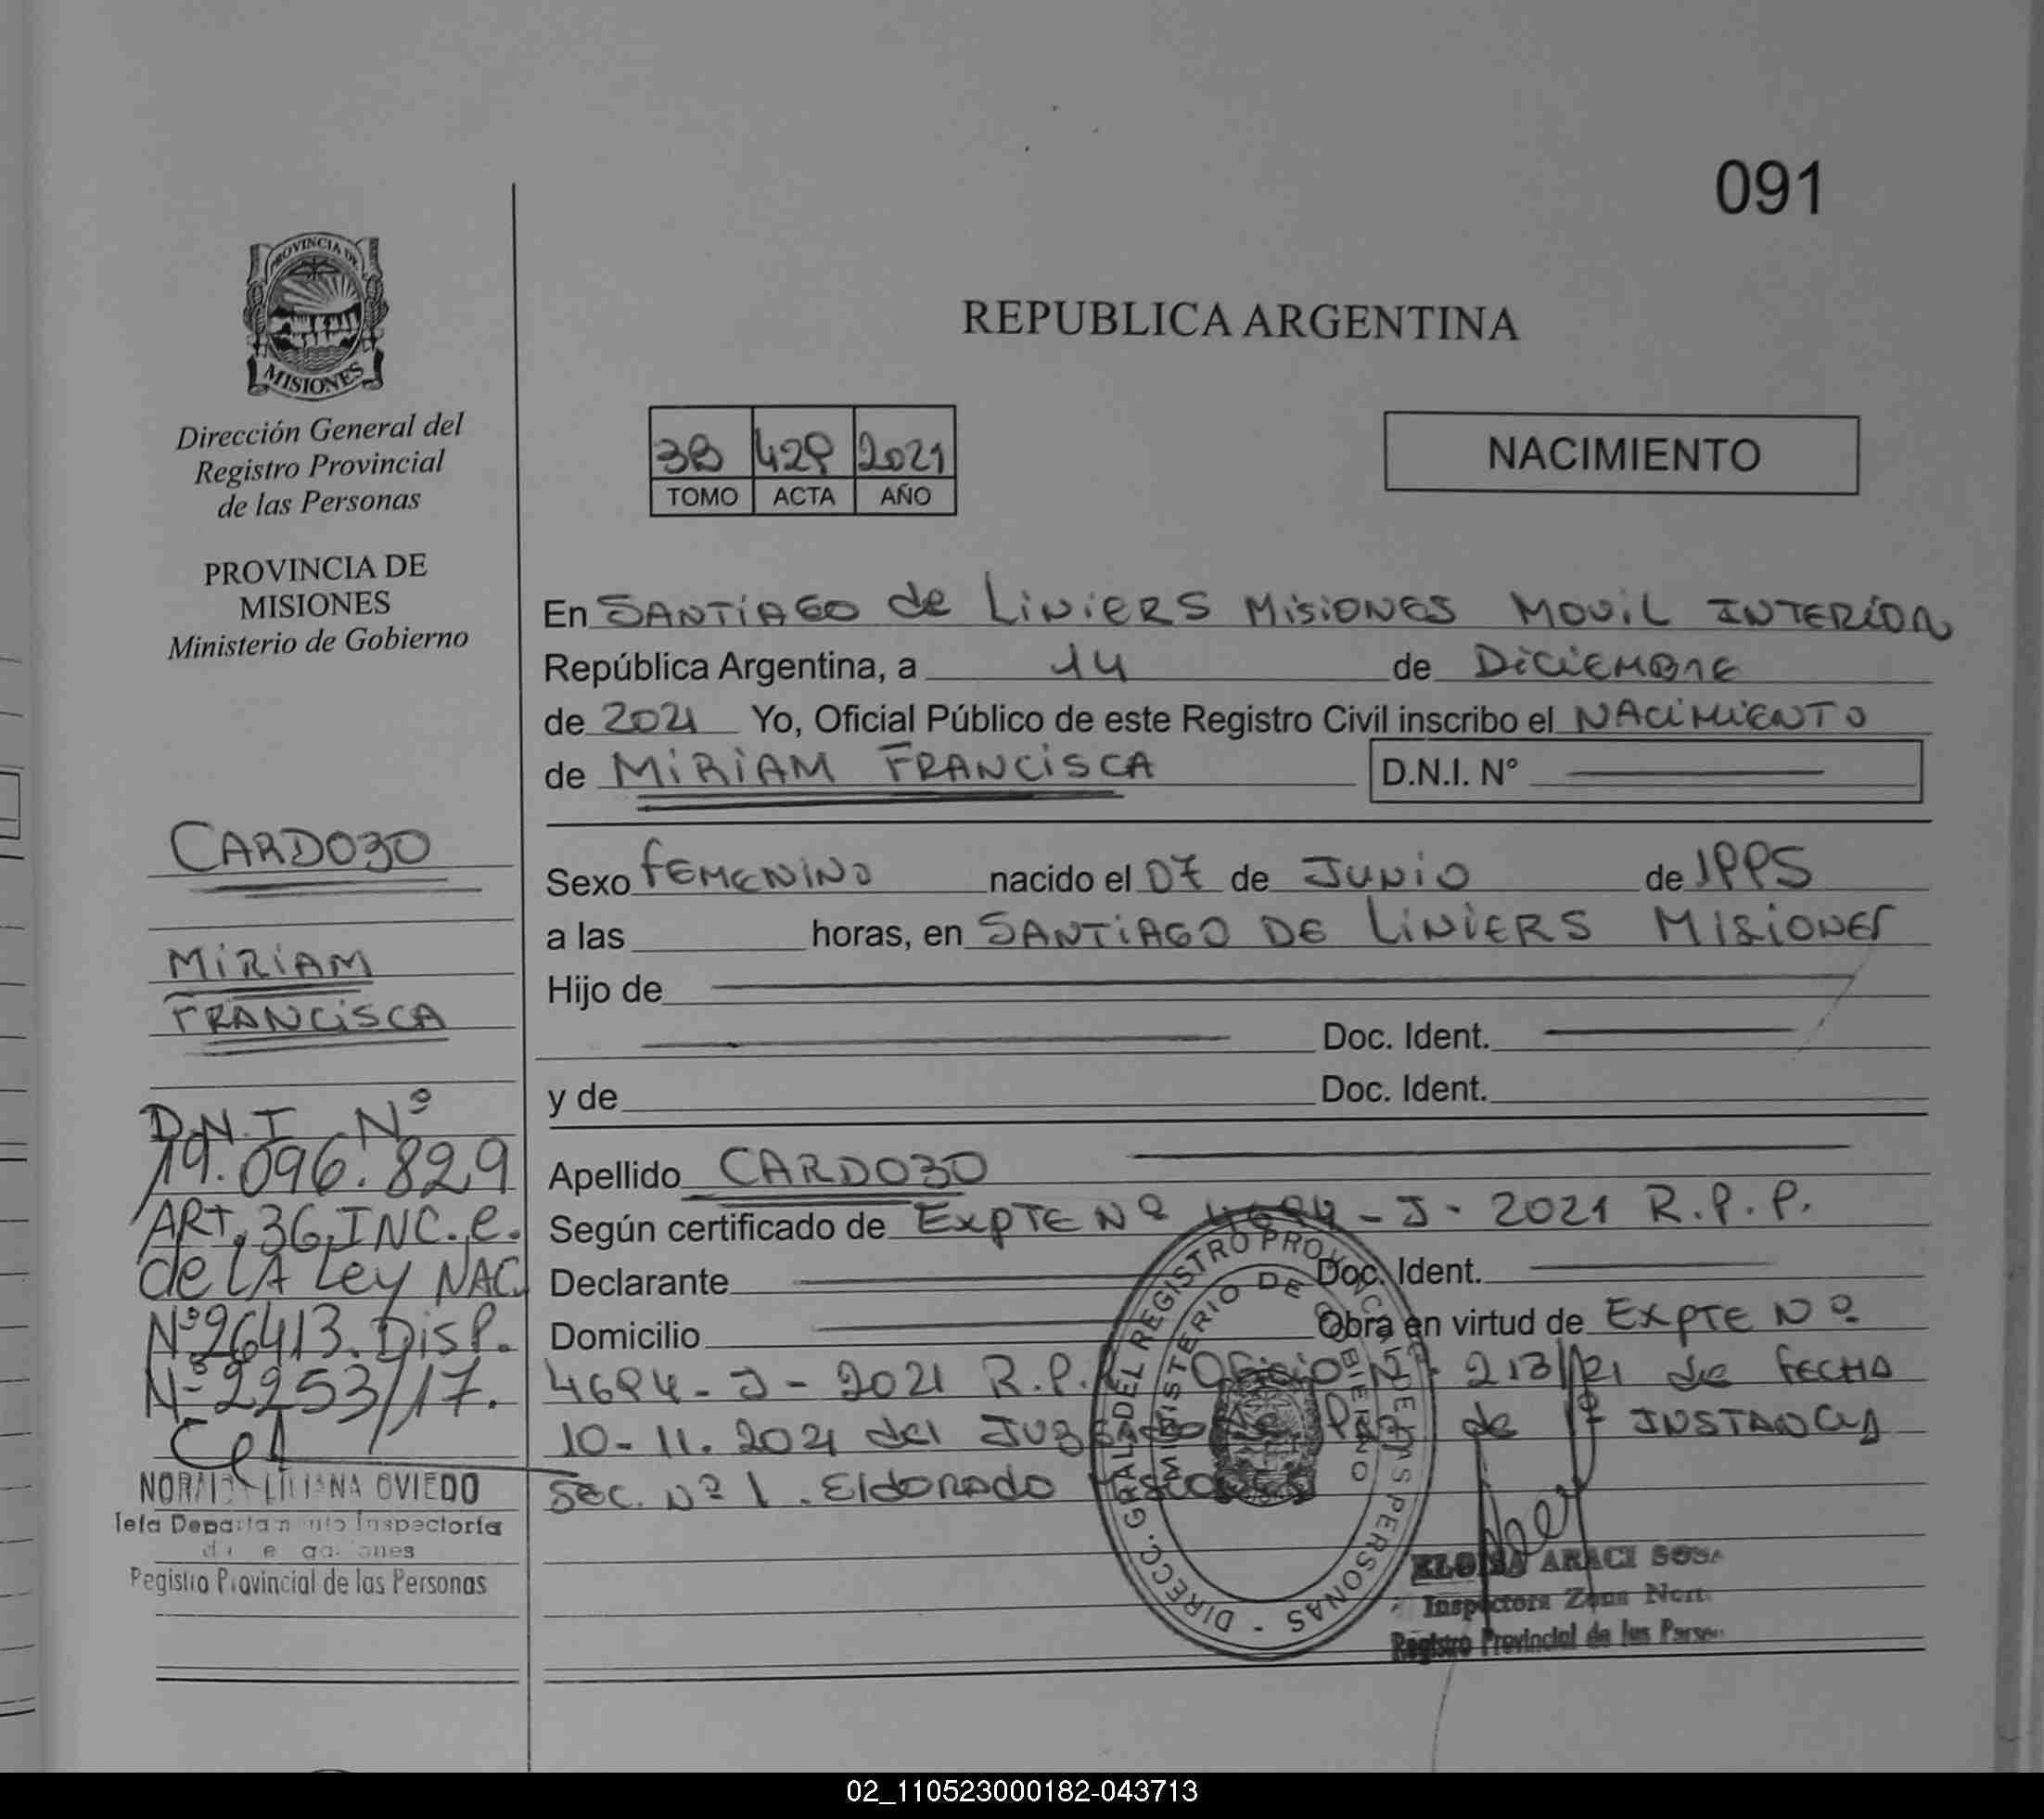 091
PROVINCIA DE
MISIONES
Dirección General del
Registro Provincial
de las Personas
PROVINCIA DE
MISIONES
Ministerio de Gobierno
CARDOZO
MIRIAM
FRANCISCA
D.N.I Nº
19.096.829
ART. 36, INC. e.
de LA Ley NAC.
Nº 26413. DISP.
Nº 2253/17.
NORMA LILIANA OVIEDO
Jefa Departamento Inspectoría
Registro Provincial de las Personas
REPUBLICA ARGENTINA
3B 429 2021
TOMO ACTA AÑO
NACIMIENTO
En SANTIAGO de LINIERS MISIONES MOVIL INTERIOR
República Argentina, a 14 de DICIEMBRE
de 2021 Yo, Oficial Público de este Registro Civil inscribo el NACIMIENTO
de MIRIAM FRANCISCA D.N.I. N°
Sexo FEMENINO nacido el 07 de JUNIO de 1995
a las horas, en SANTIAGO DE LINIERS MISIONES
Hijo de
Doc. Ident.
y de Doc. Ident.
Apellido CARDOZO
Según certificado de EXPTE Nº 4694-J-2021 R.P.P.
Declarante Doc. Ident.
Domicilio Obra en virtud de EXPTE Nº
4694-J-2021 R.P.P. Oficio Nº 213/21 de FECHA
10-11.2021 del JUZGADO de Paz de 1º INSTANCIA
SEC. Nº 1. Eldorado
DIRECC. GRAL DEL REGISTRO PROVINCIAL DE LAS PERSONAS -
MINISTERIO DE GOBIERNO
ELOISA ARACI SOSA
Inspectora Zona Norte
Registro Provincial de las Person
02_110523000182-043713